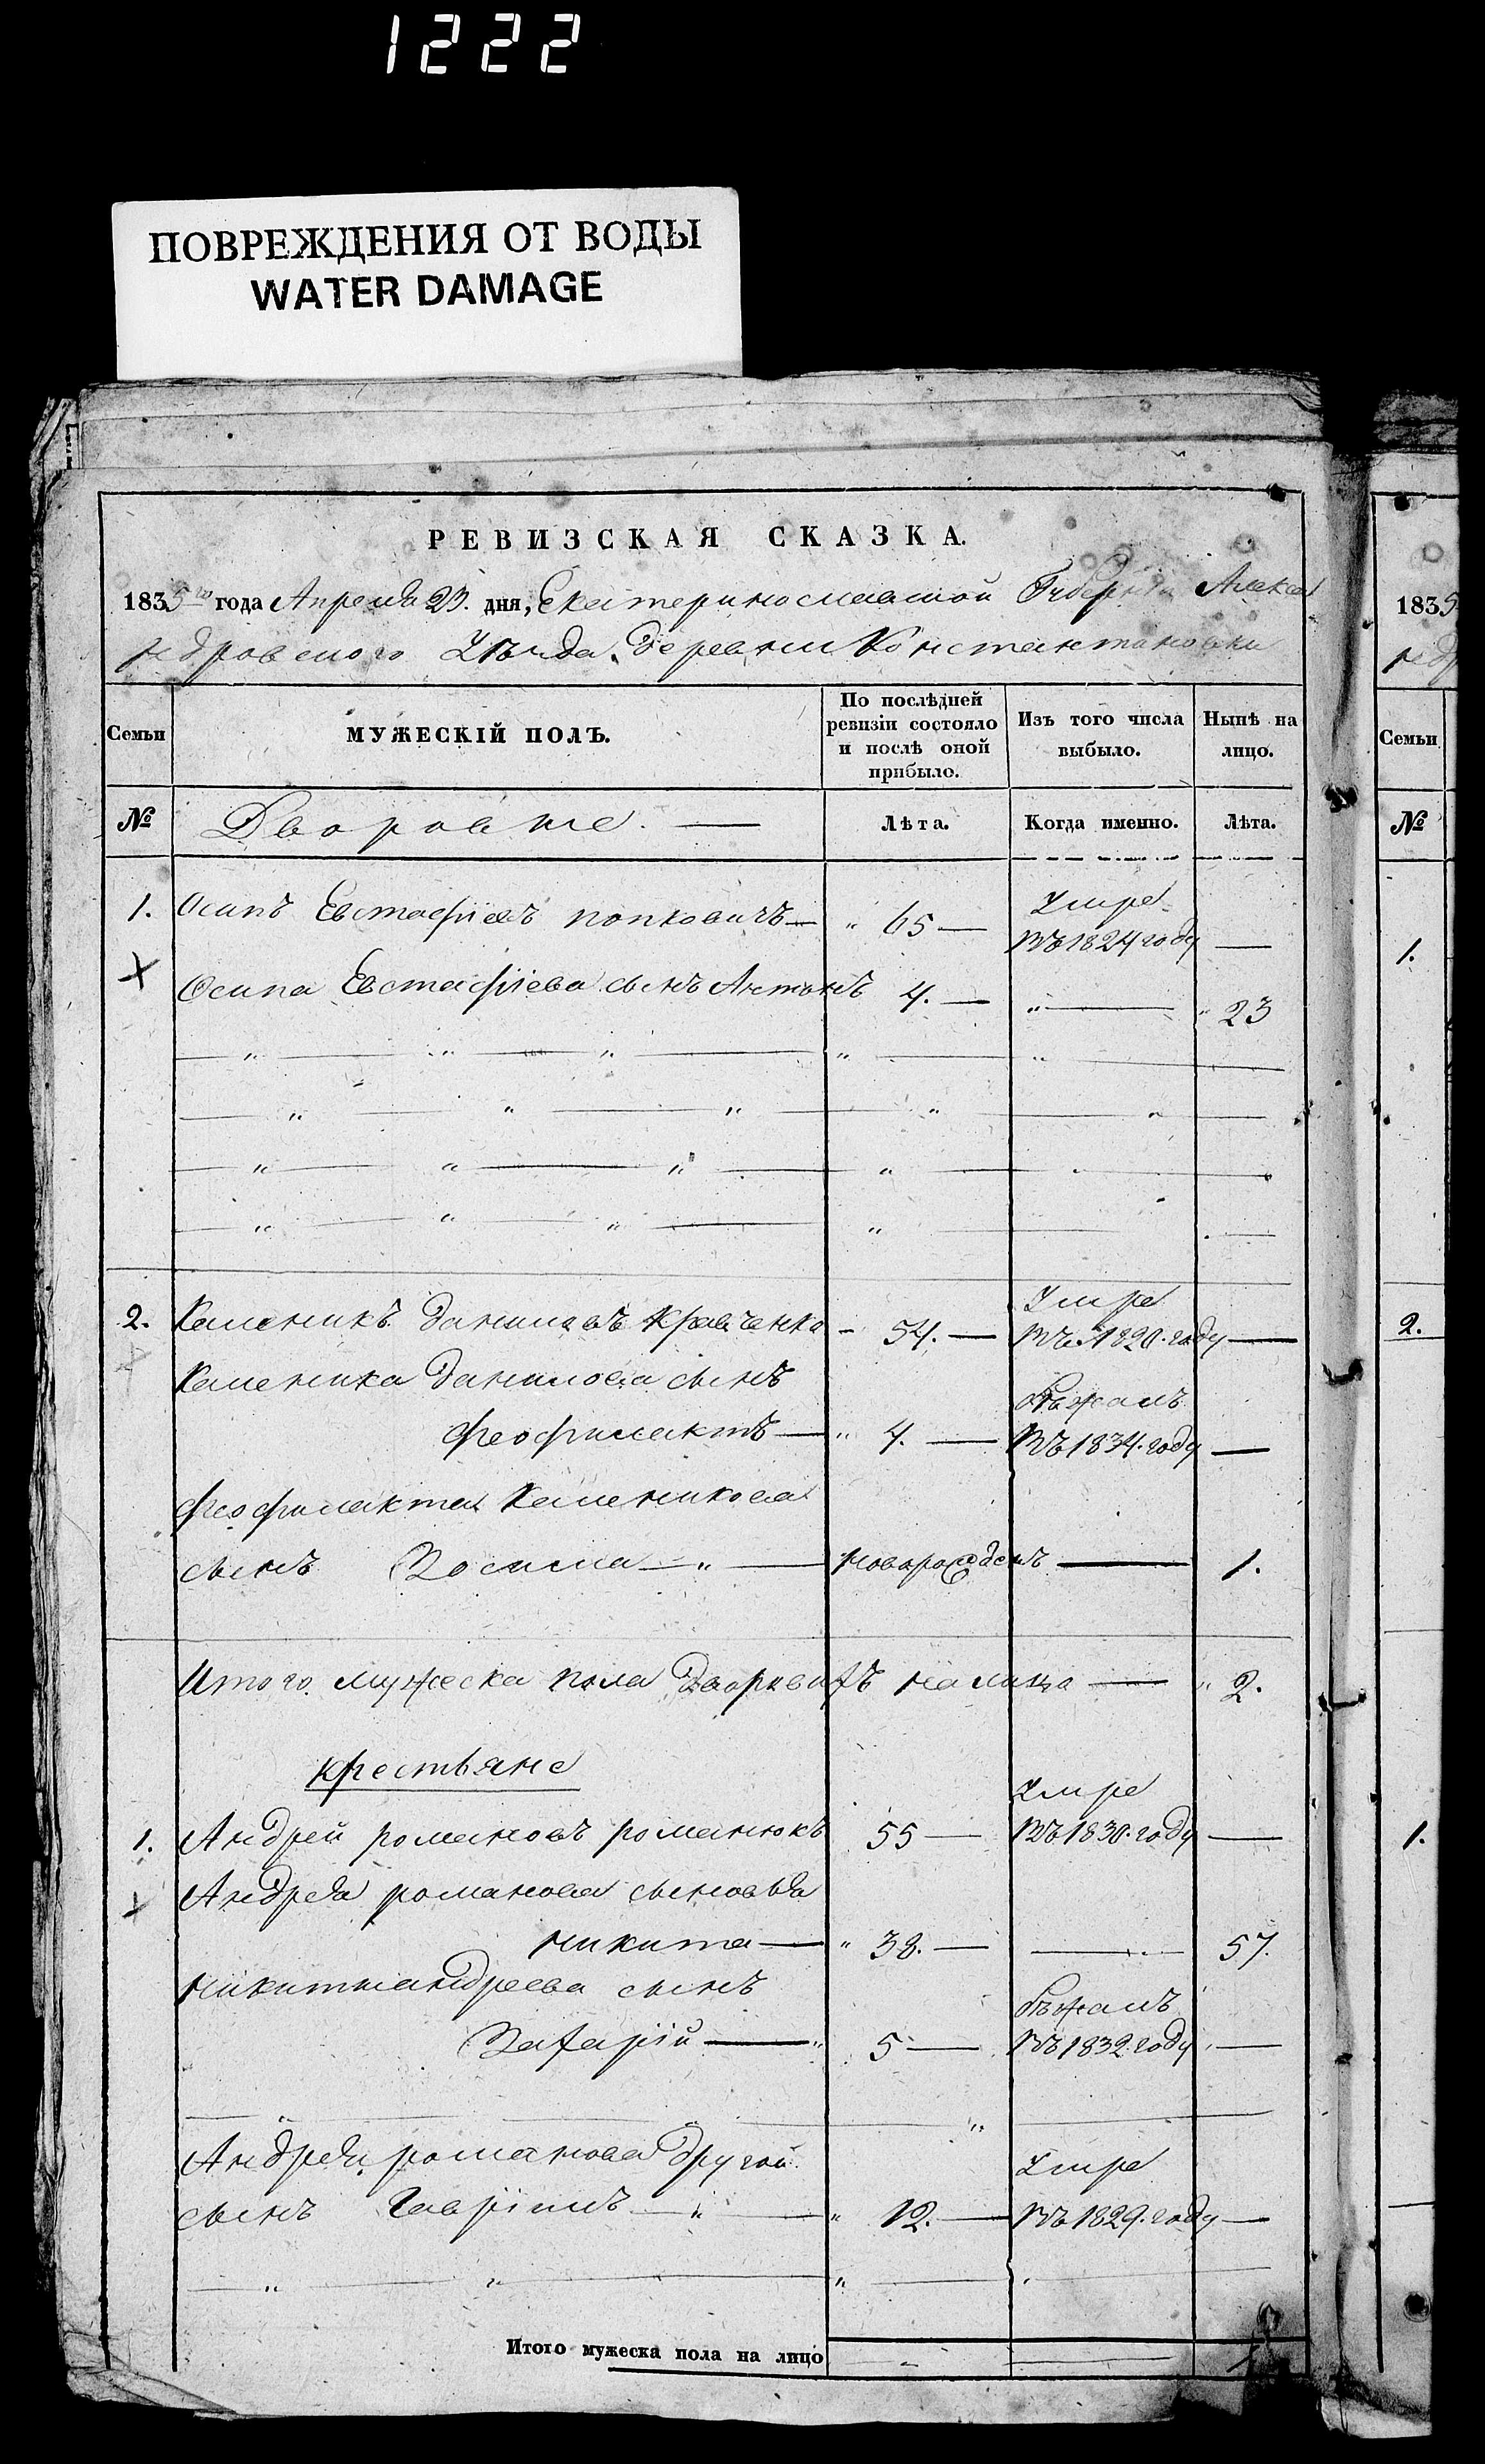 1222
ПОВРЕЖДЕНИЯ ОТ ВОДЫ
WATER DAMAGE
РЕВИЗСКАЯ СКАЗКА.
1835го года Апреля 23. дня, Екатеринославской Губерніи Алекса
ндровского Уѣзда, деревни Константиновки
Семьи
МУЖЕСКІЙ ПОЛЪ.
По послѣдней
ревизіи состояло
и послѣ оной
прибыло.
Изъ того числа
выбыло.
Нынѣ на
лицо.
№ Дворовые. — Лѣта. Когда именно. Лѣта.
Умре
1. Осипъ Евстафіевъ попковичъ — " 65 — въ 1824 году —
Осипа Евстафіева сынъ Антонъ 4. — " — " 23
Умре
2. Каленикъ Даниловъ Кравченко - 54. — въ 1820. году —
Каленика Данилова сынъ Бѣжалъ
Феофилактъ — " 4. — въ 1834. году —
Феофилакта Каленикова
сынъ Зосима — " — новорожденъ — 1.
Итого мужеска пола Дворовыхъ на лицо — " 2.
крестьяне
Умре
1. Андрей романовъ романюкъ 55 — въ 1830. году —
Андрея романова сыновья
никита — " 38. — — 57.
никиты андреева сынъ Бѣжалъ
Захарій — " 5 — въ 1832. году —
Андрея романова другой Умре
сынъ Гавріилъ — " — " 12. — въ 1829. году —
Итого мужеска пола на лицо
1835
Семьи
№
1.
2.
1.